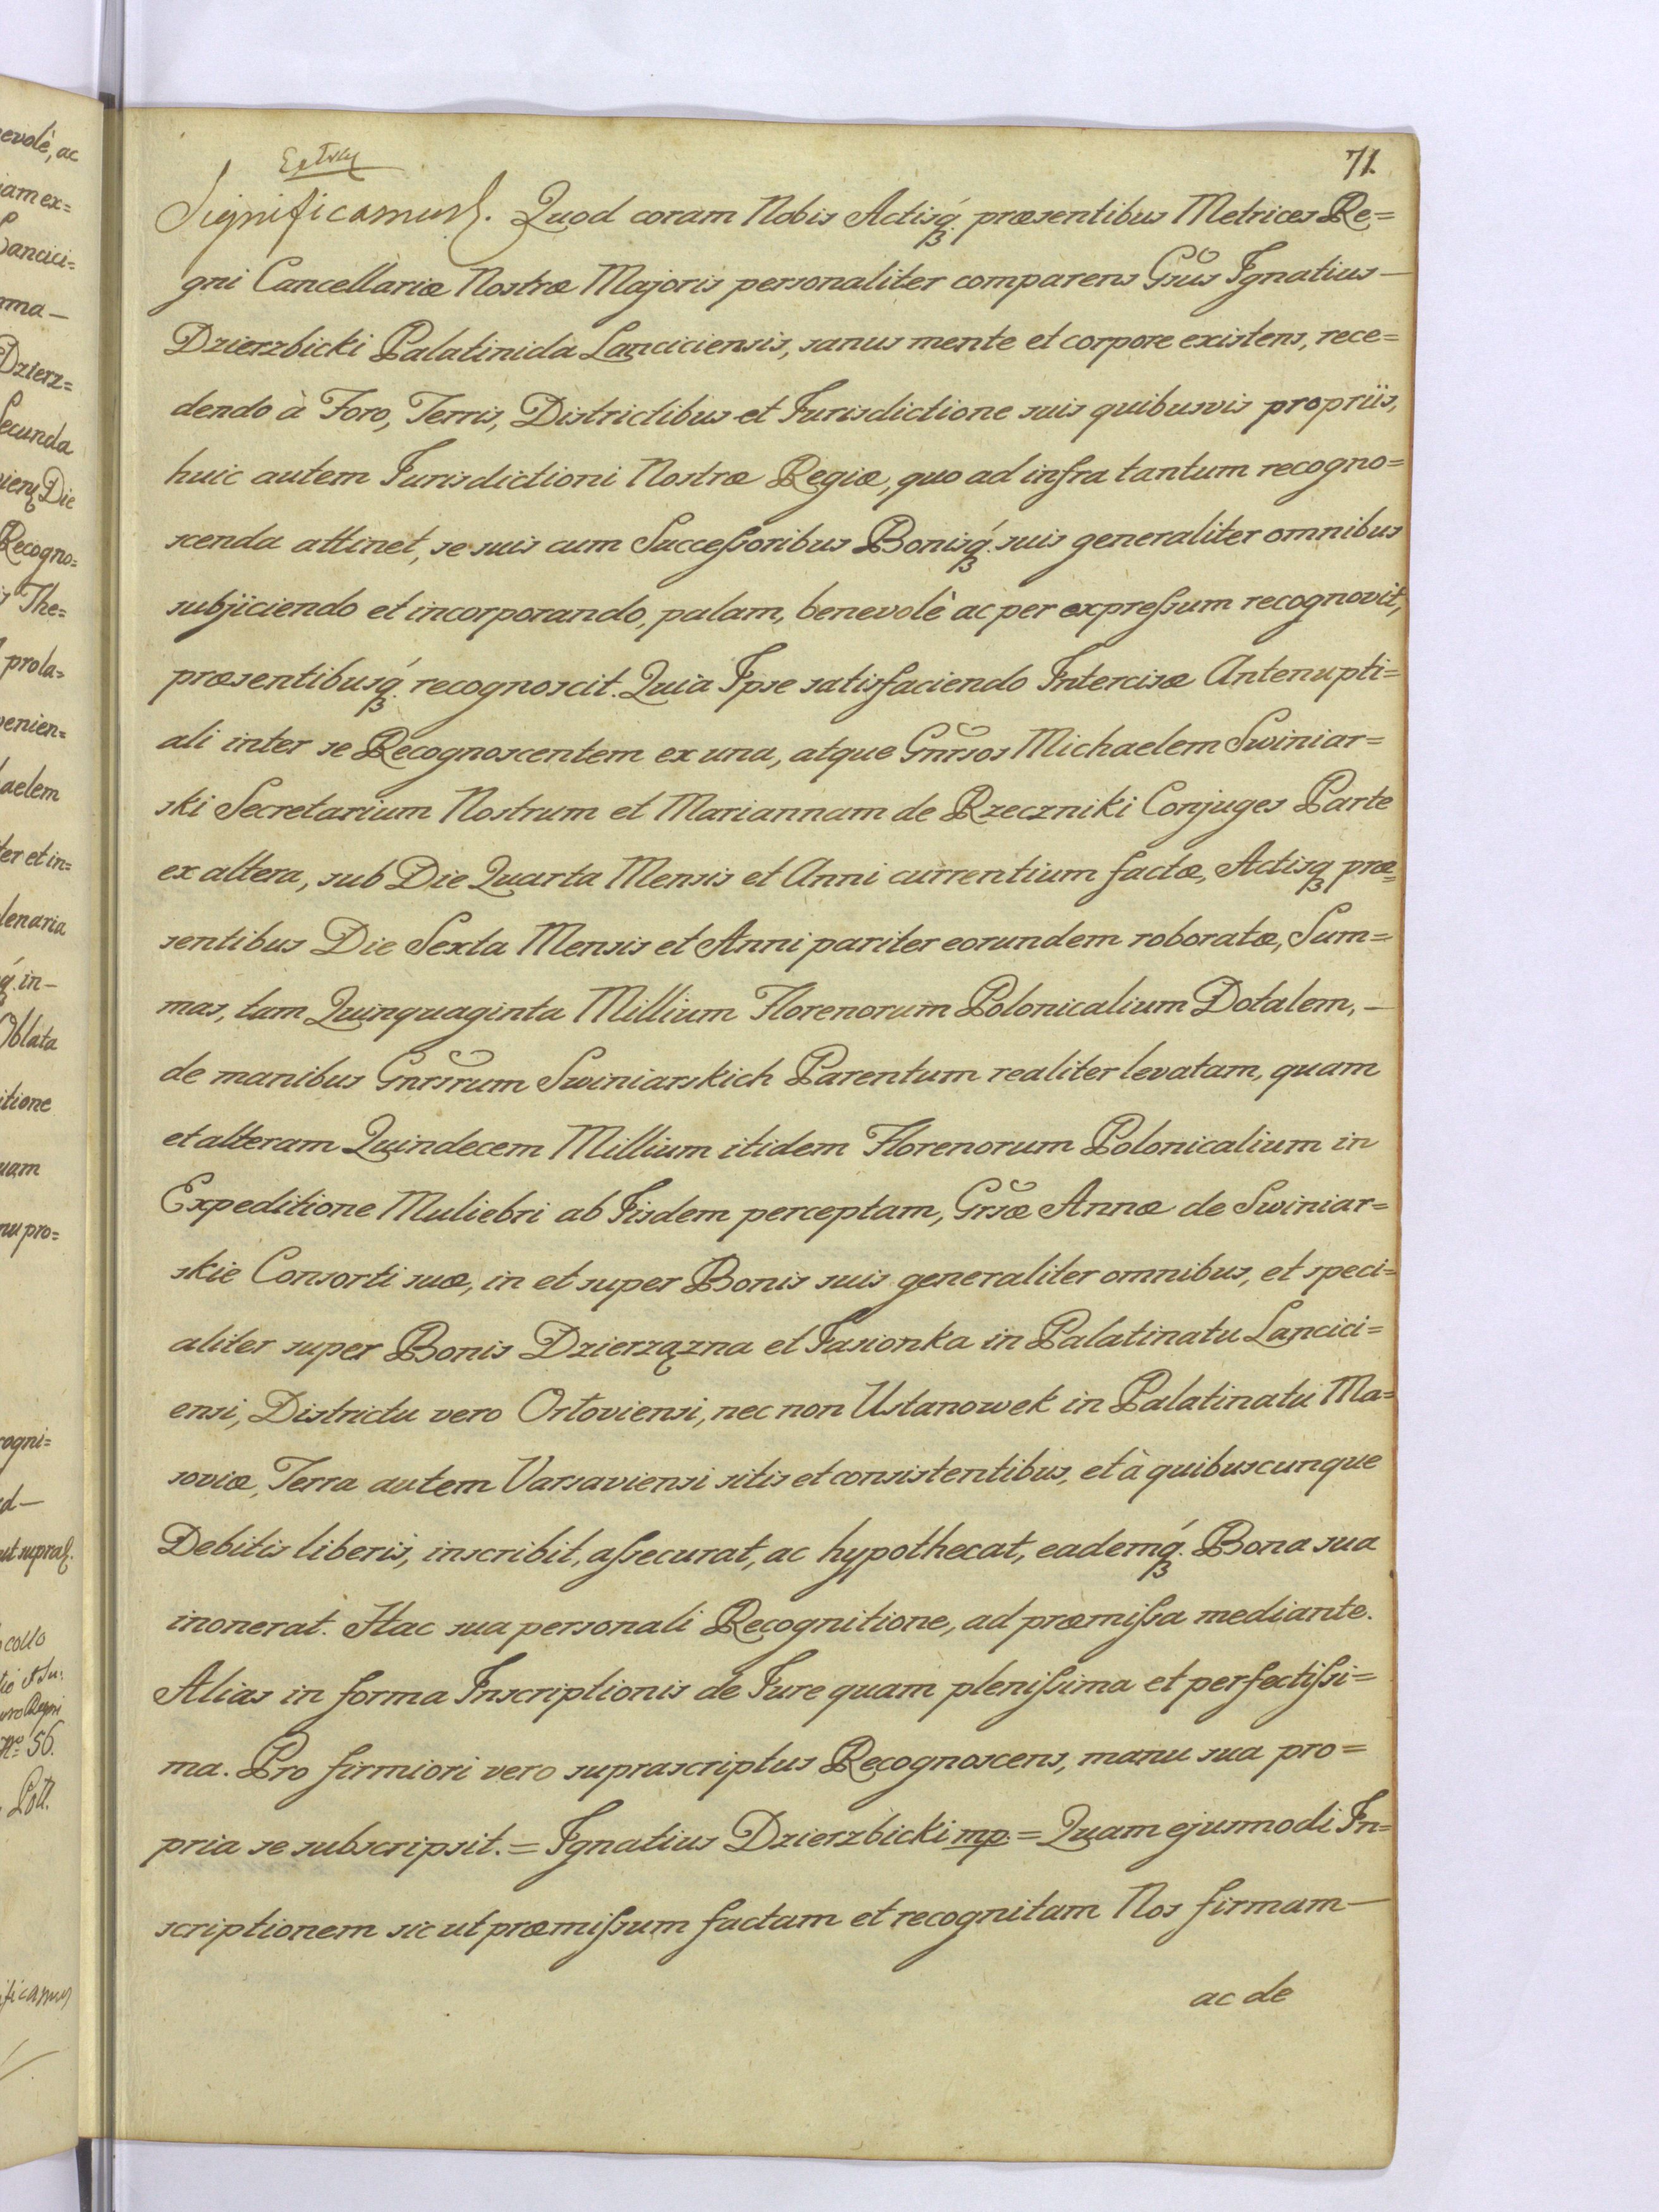 71.
Significamus. Quod coram Nobis Actisq. præsentibus Metrices Re=
gni Cancellariæ Nostræ Majoris personaliter comparens Gsus Ignatius—
Dzierzbicki Palatinida Lanciciensis, sanus mente et corpore existens, rece=
dendo à Foro, Terris, Districtibus et Jurisdictione suis quibusvis propriis,
huic autem Jurisdictioni Nostræ Regiæ, quo ad infra tantum recogno=
scenda attinet, se suis cum Successoribus Bonisq. suis generaliter omnibus
subjiciendo et incorporando, palam, benevolè ac per expressum recognovit,
præsentibusq. recognoscit. Quia Ipse satisfaciendo Intercisæ Antenupti=
ali inter se Recognoscentem ex una, atque Gnrsos Michaelem Swiniar=
ski Secretarium Nostrum et Mariannam de Rzeczniki Conjuges Parte
ex altera, sub Die Quarta Mensis et Anni currentium factæ, Actisq præ=
sentibus Die Sexta Mensis et Anni pariter eorundem roboratæ, Sum=
mas, tam Quinquaginta Millium Florenorum Polonicalium Dotalem, —
de manibus Gnrsrum Swiniarskich Parentum realiter levatam, quam
et alteram Quindecem Millium itidem Florenorum Polonicalium in
Expeditione Muliebri ab Iisdem perceptam, Grsæ Annæ de Swiniar=
skie Consorti suæ, in et super Bonis suis generaliter omnibus, et speci=
aliter super Bonis Dzierzązna et Jasionka in Palatinatu Lancici=
ensi, Districtu vero Orłoviensi, nec non Ustanowek in Palatinatu Ma=
soviæ, Terra autem Varsaviensi sitis et consistentibus, et à quibuscunque
Debitis liberis, inscribit, assecurat, ac hypothecat, eademq. Bona sua
inonerat. Hac sua personali Recognitione, ad præmissa mediante.
Alias in forma Inscriptionis de Jure quam plenissima et perfectissi=
ma. Pro firmiori vero suprascriptus Recognoscens, manu sua pro=
pria se subscripsit. = Ignatius Dzierzbicki mp. = Quam ejusmodi In=
scriptionem sic ut præmissum factam et recognitam Nos firmam—
ac de